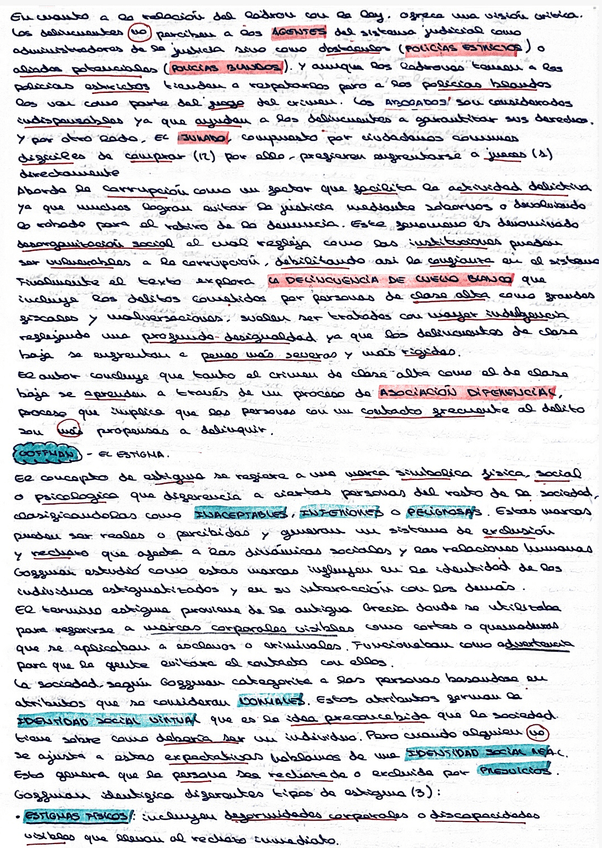 En cuanto a la relación del ladrón con la ley, ofrece una visión crítica.
Los delincuentes no perciben a los AGENTES del sistema judicial como
administradores de de justicia sino como obstáculos (POLICÍAS ESTRICTOS) o
aliados potenciales (POLICÍAS BLANDOS). Y aunque los ladrones temen a los
policías estrictos tienden a respetarlos pero a los policías blandos
los ven como parte del juego del crimen. Los ABOGADOS son considerados
indispensables ya que ayudan a los delincuentes a garantizar sus derechos.
Y por otro lado, el JURADO, compuesto por ciudadanos comunes
difíciles de comprar (12) por ello, prefieren enfrentarse a jueces (1)
directamente
Aborda la corrupción como un factor que facilita la actividad delictiva
ya que muchos logran evitar la justicia mediante sobornos o devolviendo
lo robado para el retiro de la denuncia. Este fenómeno es denominado
desorganización social el cual refleja como las instituciones pueden
ser vulnerables a la corrupción, debilitando así la confianza en el sistema
Finalmente el texto explora LA DELINCUENCIA DE CUELLO BLANCO que
incluye los delitos cometidos por personas de clase alta como fraudes
fiscales y malversaciones, suelen ser tratados con mayor indulgencia
reflejando una profunda desigualdad ya que los delincuentes de clase
baja se enfrentan a penas más severas y más rígidas.
El autor concluye que tanto el crimen de clase alta como el de clase
baja se aprenden a través de un proceso de ASOCIACIÓN DIFERENCIAL,
proceso que implica que las personas con un contacto frecuente al delito
son más propensas a delinquir.
GOFFMAN - EL ESTIGMA.
El concepto de estigma se refiere a una marca simbólica física, social
o psicológica que diferencia a ciertas personas del resto de la sociedad,
clasificándolas como INACEPTABLES, INFERIORES o PELIGROSAS. Estas marcas
pueden ser reales o percibidas y generan un sistema de exclusión
y rechazo que afecta a las dinámicas sociales y las relaciones humanas
Goffman estudió como estas marcas influyen en la identidad de los
individuos estigmatizados y en su interacción con los demás.
El termino estigma proviene de la antigua Grecia donde se utilizaba
para referirse a marcas corporales visibles como cortes o quemaduras
que se aplicaban a esclavos o criminales. Funcionaban como advertencia
para que la gente evitara el contacto con ellos.
La sociedad según Goffman categoriza a las personas basandose en
atributos que se consideran NORMALES. Estos atributos forman la
IDENTIDAD SOCIAL VIRTUAL que es la idea preconcebida que la sociedad
tiene sobre como debería ser un individuo. Pero cuando alguien no
se ajusta a estas expectativas hablamos de una IDENTIDAD SOCIAL REAL.
Esto genera que la persona sea rechazada o excluida por PREJUICIOS.
Goffman identifica diferentes tipos de estigma (3):
• ESTIGMAS FÍSICOS: incluyen deformidades corporales o discapacidades
visibles que llevan al rechazo inmediato.